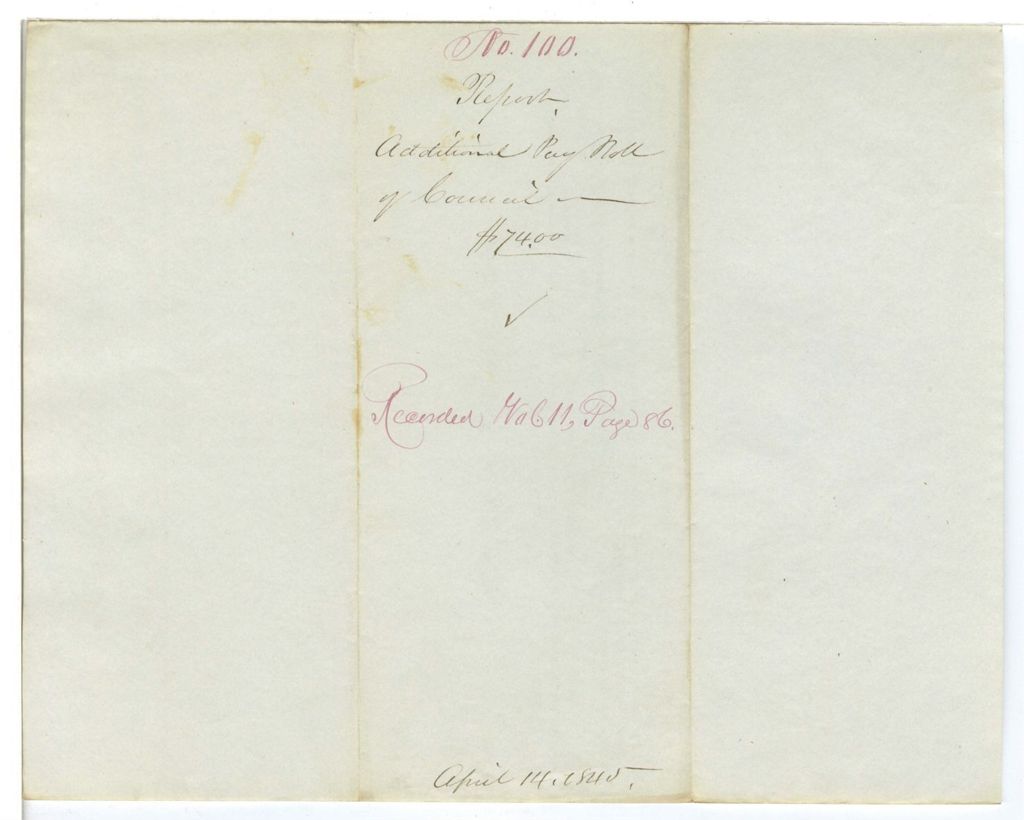 No. 100.
Report.
Additional Pay Roll
of Council —
$74.00
✓
Recorded Vol 11, Page 86.
April 14, 1845.